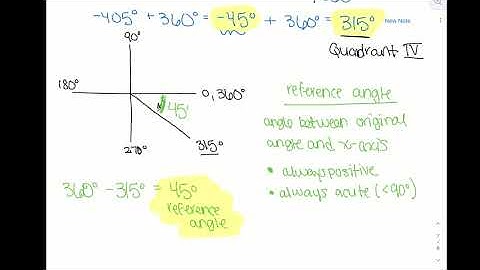 -405° + 360° = -45° + 360° = 315°
New Note
Quadrant IV
90°
180°
0, 360°
45°
315°
270°
360° - 315° = 45°
reference
angle
reference angle
angle between original
angle and x-axis
• always positive
• always acute (<90°)